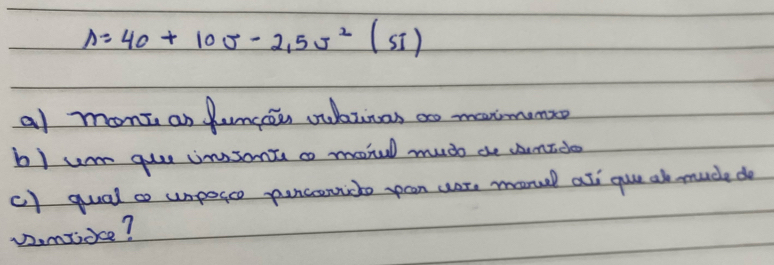 s = 40 + 10t - 2,5t² (SI)
a) Monte as funções relativas ao movimento
b) em que instante o móvel muda de sentido
c) qual o espaço percorrido por este movel até que ele mude de
sentido?